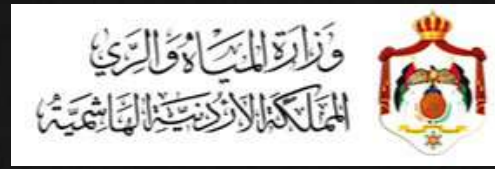 وَزَارَةُ المِيَاهِ وَالرَّيِّ
المَمْلَكَةُ الأُرْدُنِيَّةُ الهَاشِمِيَّةُ